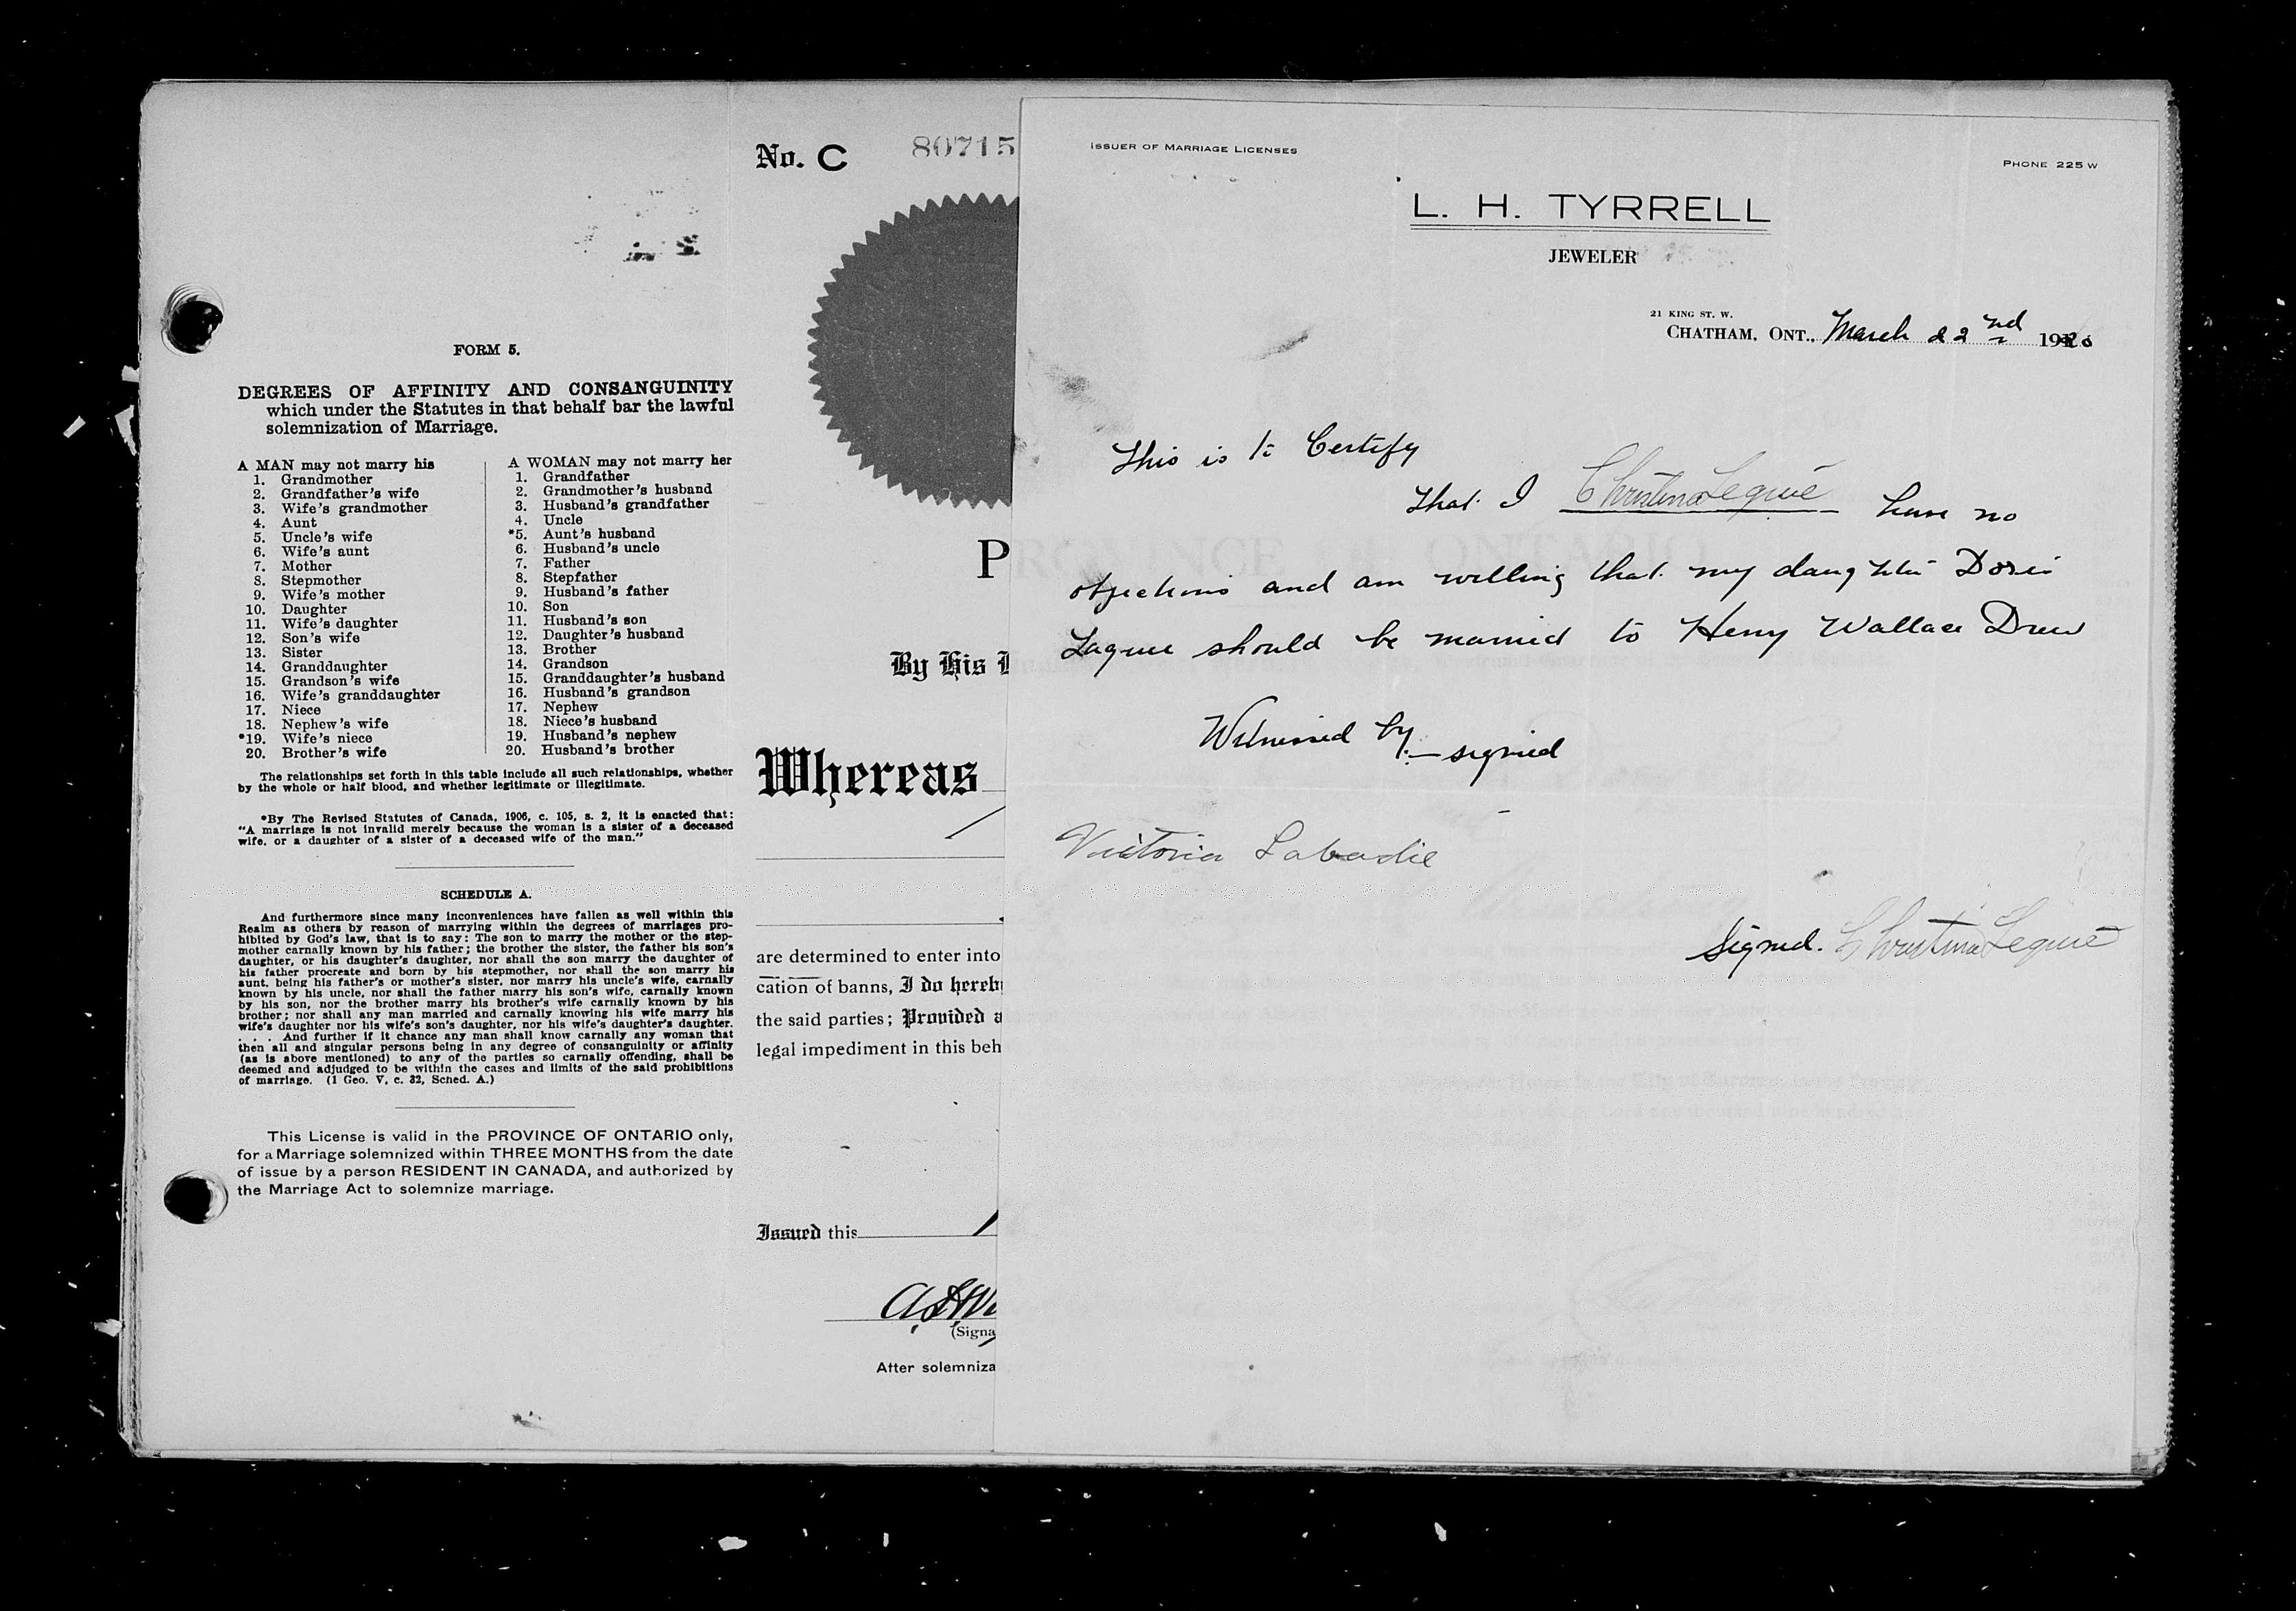 FORM 5.
DEGREES OF AFFINITY AND CONSANGUINITY
which under the Statutes in that behalf bar the lawful
solemnization of Marriage.
A MAN may not marry his
1. Grandmother
2. Grandfather's wife
3. Wife's grandmother
4. Aunt
5. Uncle's wife
6. Wife's aunt
7. Mother
8. Stepmother
9. Wife's mother
10. Daughter
11. Wife's daughter
12. Son's wife
13. Sister
14. Granddaughter
15. Grandson's wife
16. Wife's granddaughter
17. Niece
18. Nephew's wife
*19. Wife's niece
20. Brother's wife
A WOMAN may not marry her
1. Grandfather
2. Grandmother's husband
3. Husband's grandfather
4. Uncle
*5. Aunt's husband
6. Husband's uncle
7. Father
8. Stepfather
9. Husband's father
10. Son
11. Husband's son
12. Daughter's husband
13. Brother
14. Grandson
15. Granddaughter's husband
16. Husband's grandson
17. Nephew
18. Niece's husband
19. Husband's nephew
20. Husband's brother
The relationships set forth in this table include all such relationships, whether
by the whole or half blood, and whether legitimate or illegitimate.
*By The Revised Statutes of Canada, 1906, c. 105, s. 2, it is enacted that:
"A marriage is not invalid merely because the woman is a sister of a deceased
wife, or a daughter of a sister of a deceased wife of the man."
SCHEDULE A.
And furthermore since many inconveniences have fallen as well within this
Realm as others by reason of marrying within the degrees of marriages pro-
hibited by God's law, that is to say: The son to marry the mother or the step-
mother carnally known by his father; the brother the sister, the father his son's
daughter, or his daughter's daughter, nor shall the son marry the daughter of
his father procreate and born by his stepmother, nor shall the son marry his
aunt, being his father's or mother's sister, nor marry his uncle's wife, carnally
known by his uncle, nor shall the father marry his son's wife, carnally known
by his son, nor the brother marry his brother's wife carnally known by his
brother; nor shall any man married and carnally knowing his wife marry his
wife's daughter nor his wife's son's daughter, nor his wife's daughter's daughter.
. . . And further if it chance any man shall know carnally any woman that
then all and singular persons being in any degree of consanguinity or affinity
(as is above mentioned) to any of the parties so carnally offending, shall be
deemed and adjudged to be within the cases and limits of the said prohibitions
of marriage. (1 Geo. V, c. 32, Sched. A.)
This License is valid in the PROVINCE OF ONTARIO only,
for a Marriage solemnized within THREE MONTHS from the date
of issue by a person RESIDENT IN CANADA, and authorized by
the Marriage Act to solemnize marriage.
No. C 80715
P
By His
Whereas
are determined to enter into
cation of banns, I do hereb
the said parties; Provided a
legal impediment in this beh
Issued this
(Signa
After solemniza
ISSUER OF MARRIAGE LICENSES
PHONE 225 W
L. H. TYRRELL
JEWELER
21 KING ST. W.
CHATHAM, ONT., March 22nd 1920
This is to Certify
that I Christina Lequié have no
objections and am willing that my daughter Doris
Laquie should be married to Henry Wallace Drew
Witnessed by — signed
Victoria Labadie
Signed. Christina Lequié